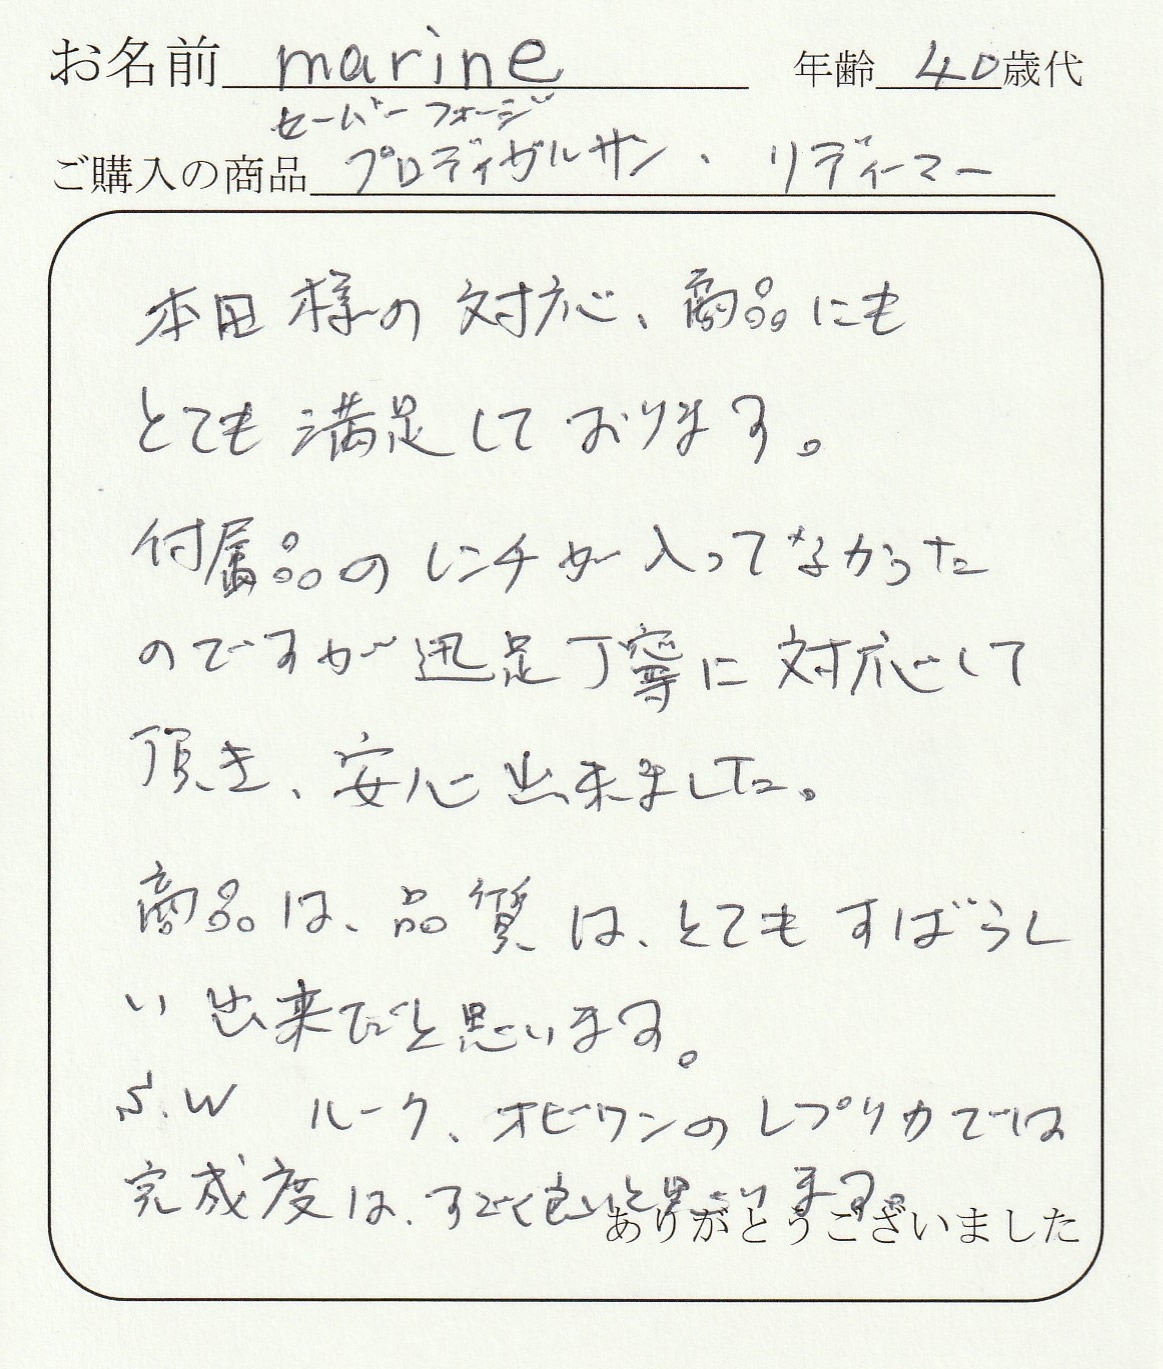 お名前 marine 年齢 40 歳代
セーバーフォージ
ご購入の商品 プロディガルサン、リディーマー
本田様の対応、商品にも
とても満足しております。
付属品のレンチが入ってなかった
のですが迅足丁寧に対応して
頂き、安心出来ました。
商品は、品質は、とてもすばらし
い出来だと思います。
S.W ルーク、オビワンのレプリカでは
完成度は、すごく良いと思います。
ありがとうございました